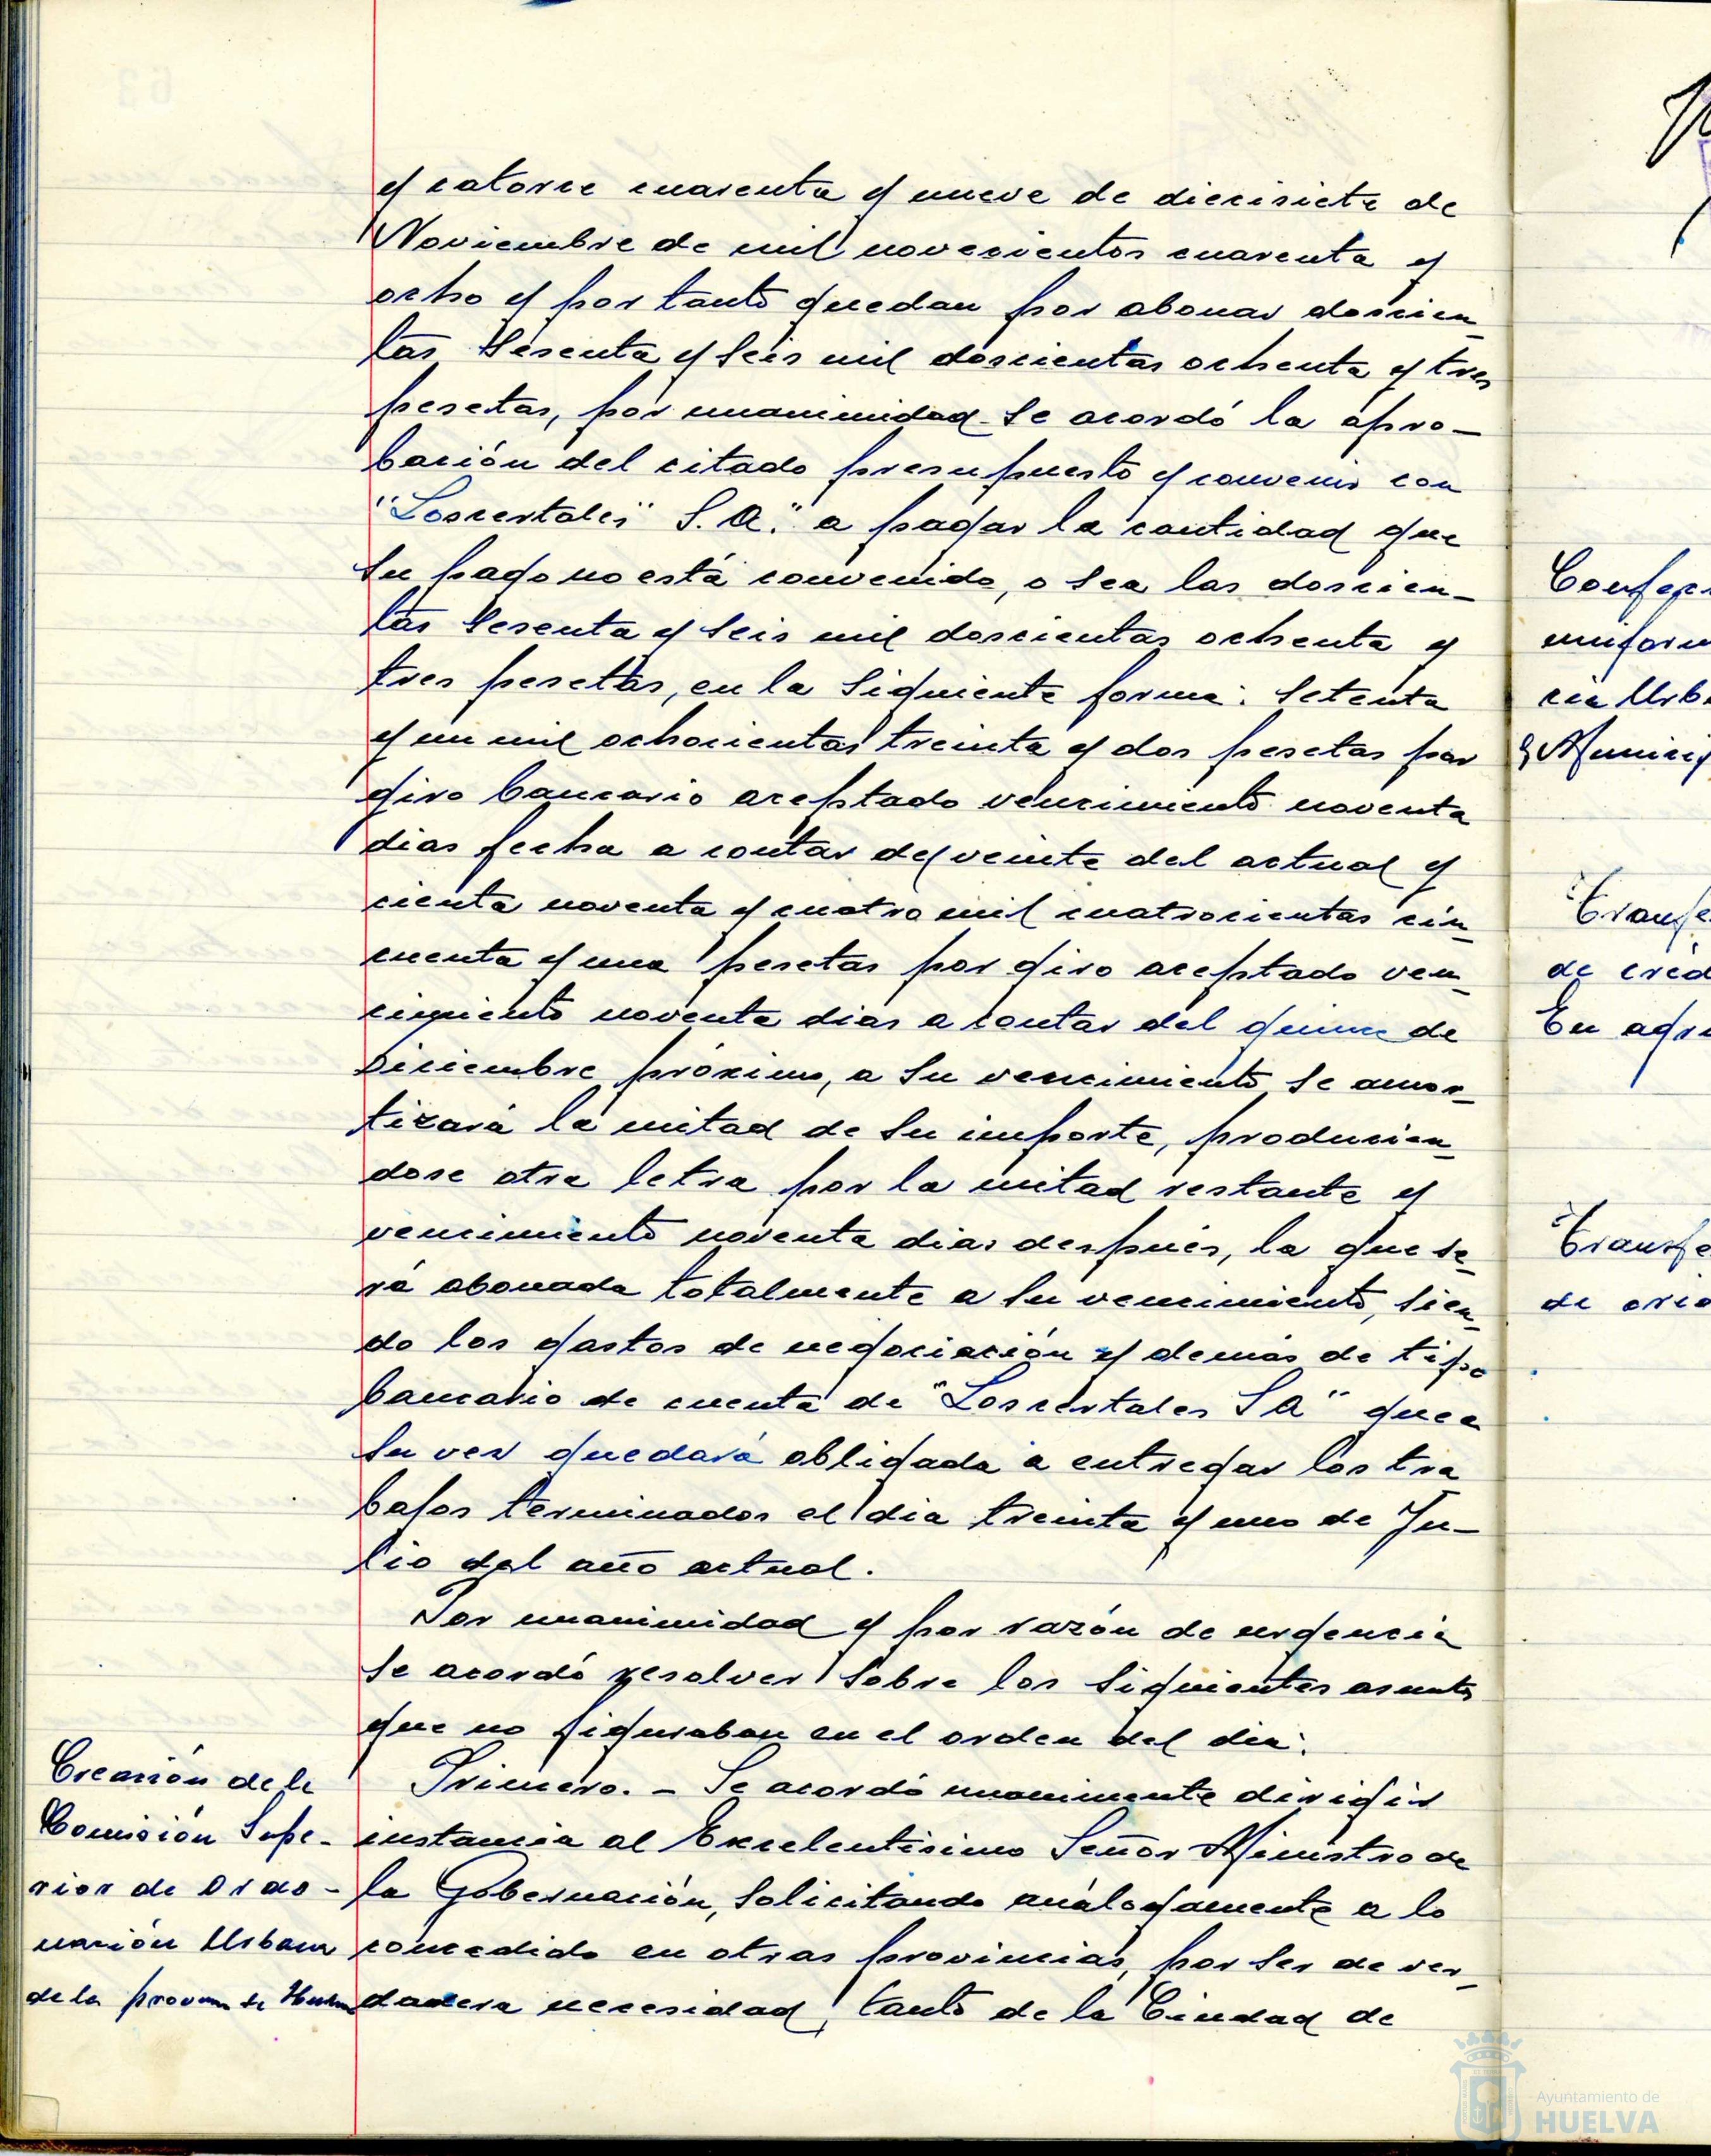 y catorce cuarenta y nueve de diecisiete de
Noviembre de mil novecientos cuarenta y
ocho y por tanto quedan por abonar doscien_
tas Sesenta y Seis mil doscientas ochenta y tres
pesetas, por unanimidad Se acordó la apro-
bación del citado presupuesto y convenir con
"Loscertales" S.A." a pagar la cantidad que
Su pago no está convenido, o Sea las doscien-
tas Sesenta y Seis mil doscientas ochenta y
tres pesetas, en la Siguiente forma: Setenta
y un mil ochocientas treinta y dos pesetas por
giro bancario aceptado vencimiento noventa
dias fecha a contar del veinte del actual y
cienta noventa y cuatro mil cuatrocientas cin_
cuenta y una pesetas por giro aceptado ven_
cimiento noventa dias a contar del quince de
Diciembre próximo, a Su vencimiento Se amor_
tizará la mitad de Su importe, producien_
dose otra letra por la mitad restante y
vencimiento noventa dias despues, la que se_
rá abonada totalmente a Su vencimiento, Sien_
do los gastos de negociación y demás de tipo
bancario de cuenta de "Loscertales S A" que a
Su vez quedará obligada a entregar los tra_
bajos terminados el dia treinta y uno de Ju-
lio del año actual.
Por unanimidad y por razón de urgencia
Se acordó resolver Sobre los Siguientes asuntos
que no figuraban en el orden del dia:
Creación de la
Comisión Supe-
rior de Orde-
nación Urbana
de la provin de Huelva
Primero. - Se acordó unanimente dirigir
instancia al Excelentisimo Señor Ministro de
la Gobernación, Solicitando análogamente a lo
concedido en otras provincias, por Ser de ver_
dadera necesidad, tanto de la Ciudad de
Confec
uniform
cia Urb
y Munici
Transfe
de créd
En agru
Transfe
de créd
Ayuntamiento de
HUELVA